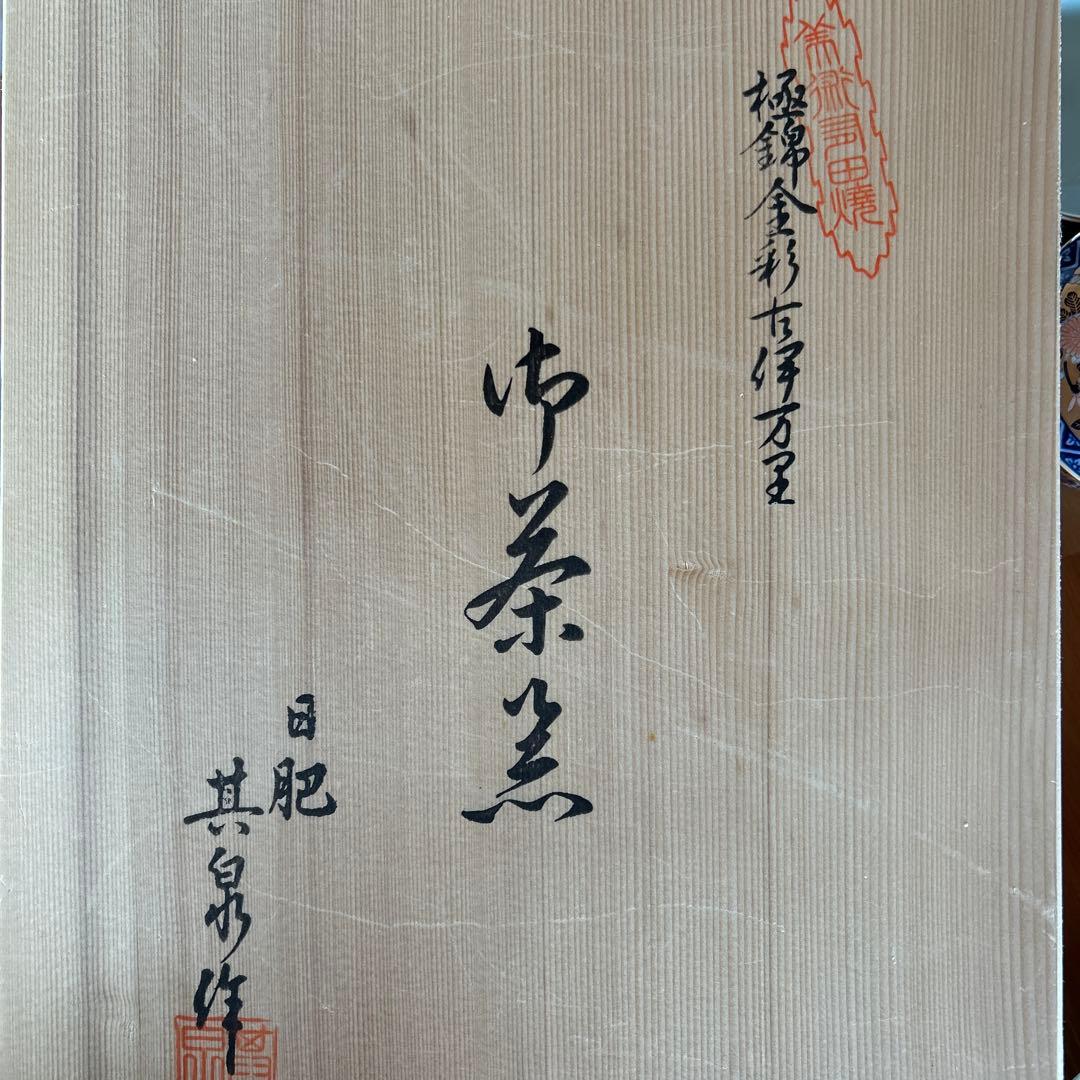 美術有田焼
極錦金彩古伊万里
御茶器
日肥
其泉作